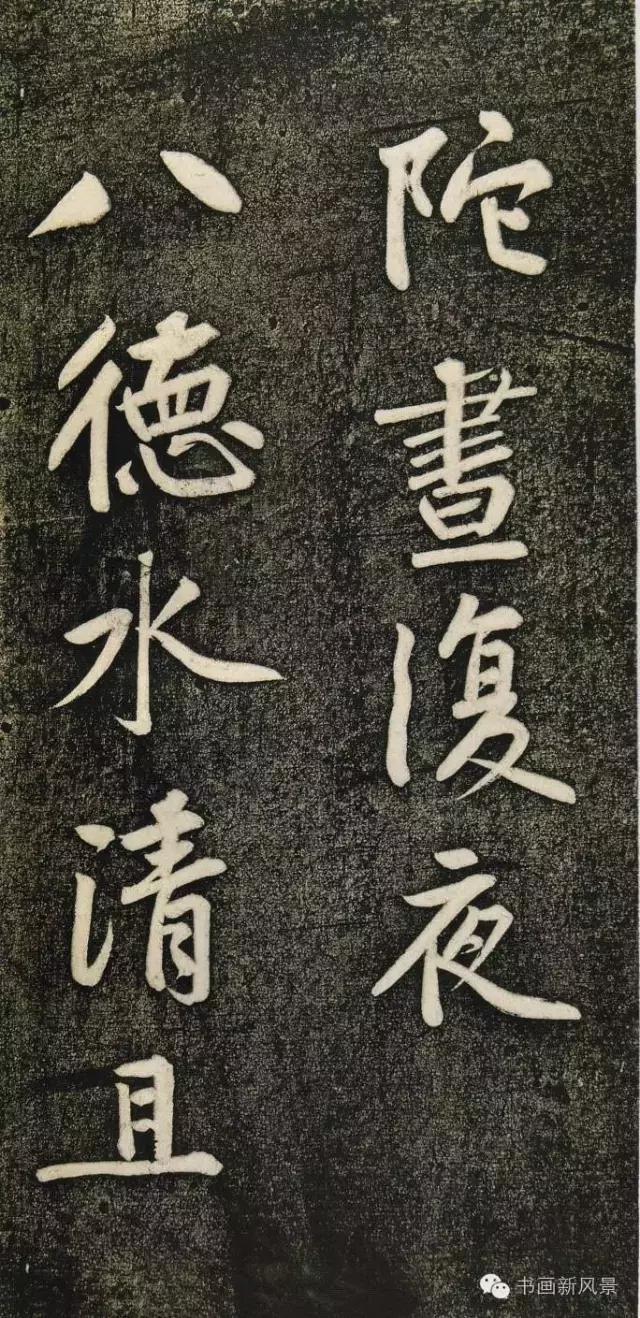 陀晝復夜
八德水清且
书画新风景